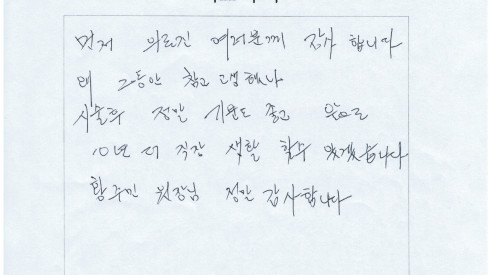 먼저 의료진 여러분께 감사 합니다
왜 그동안 참고 고생했나
시술후 정말 기분도 좋고 앞으로
10년 더 직장 생활 할수 있겠습니다
황주민 원장님 정말 감사합니다